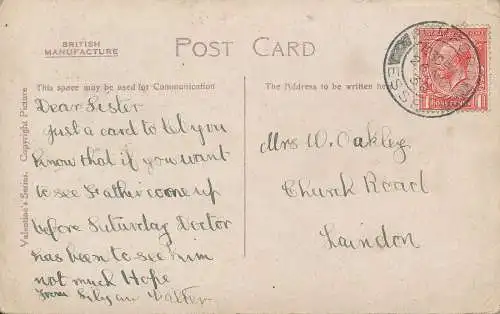 BRITISH
MANUFACTURE
POST CARD
This space may be used for Communication
The Address to be written here
Dear Sister
Just a card to let you
know that if you want
to see Father come up
before Saturday Doctor
has been to see him
not much Hope
From
Mrs W. Oakley
Church Road
Laindon
Valentine's Series. Copyright Picture
ESSEX